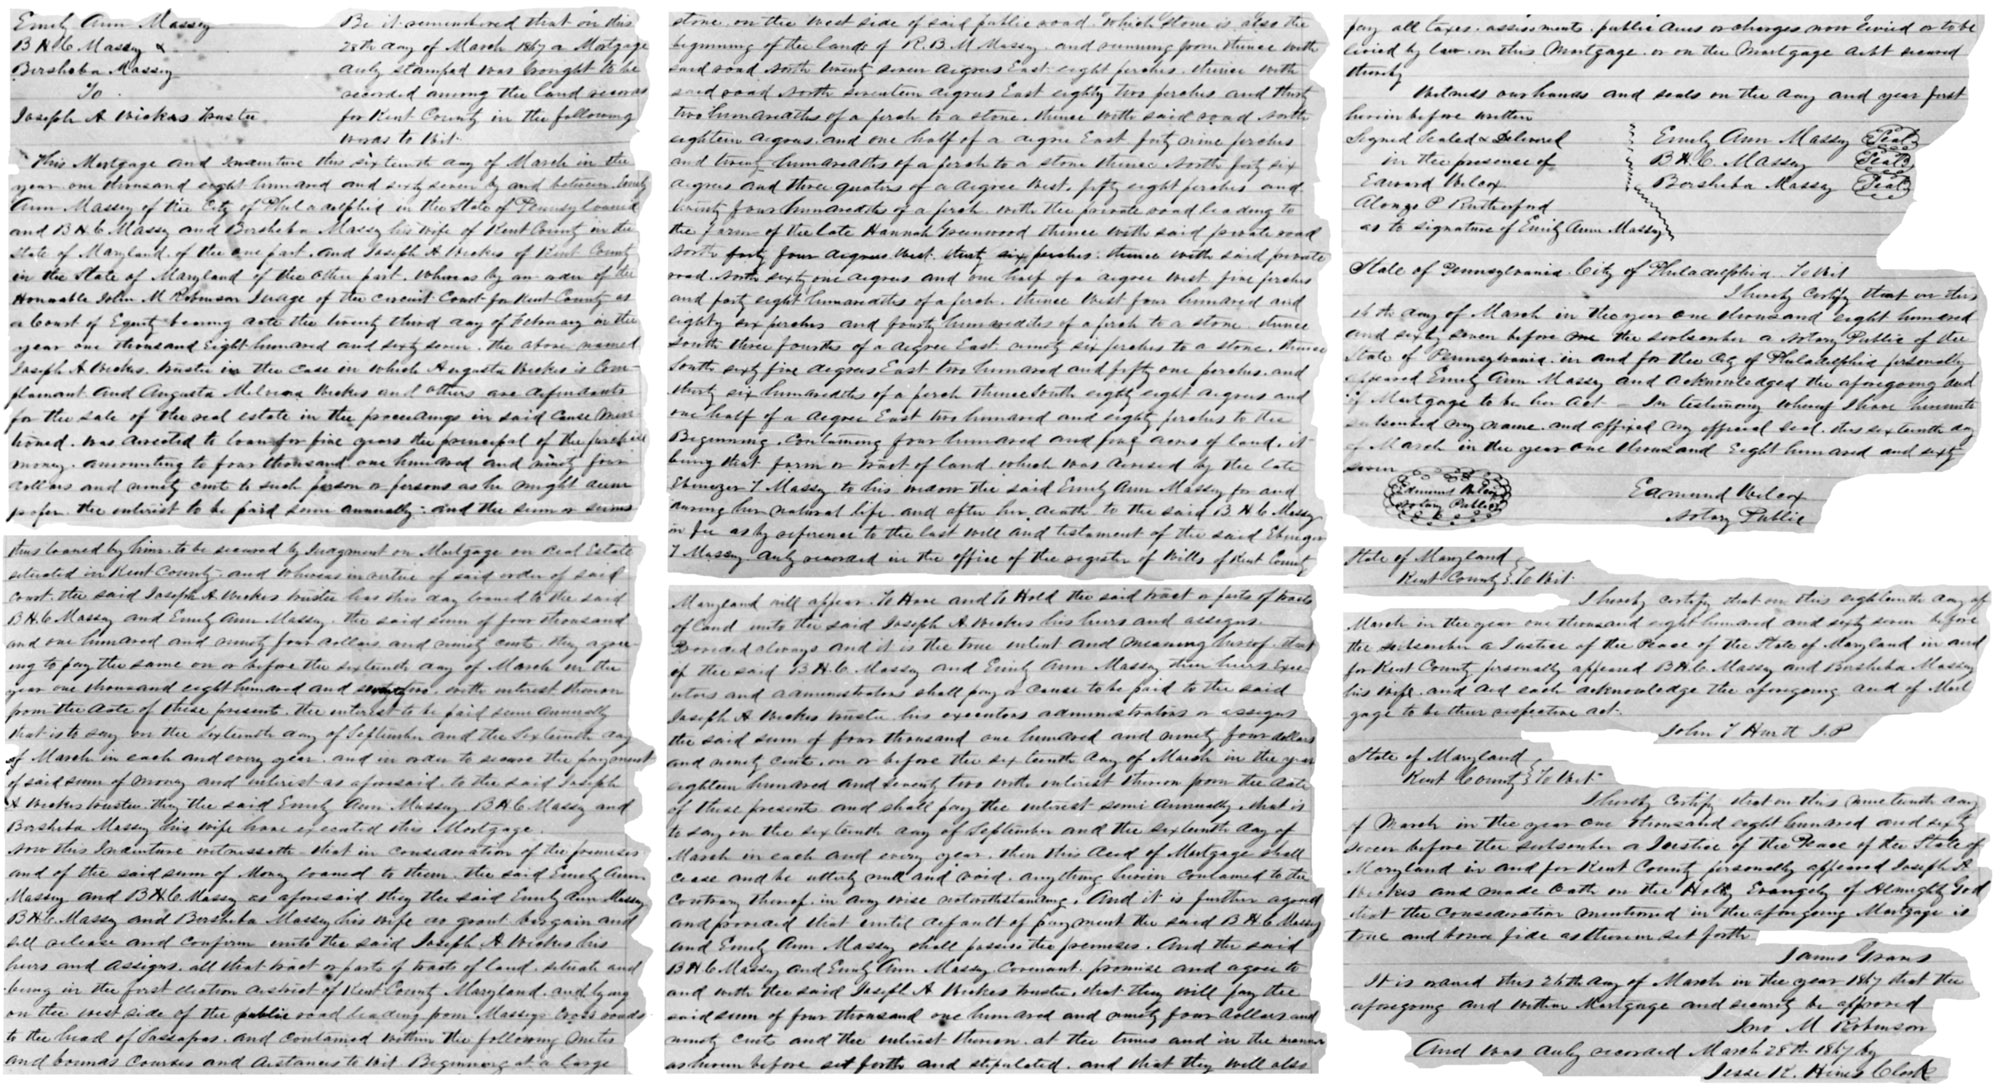 Emily Ann Massey
B H C Massey &
Bersheba Massey
To
Joseph A Wickes Trustee
Be it remembered that on this
28th day of March 1867 a Mortgage
duly stamped was brought to be
recorded among the land records
for Kent County in the following
words to Wit.
This Mortgage and Indenture this sixteenth day of March in the
year one thousand eight hundred and sixty seven by and between Emily
Ann Massey of the City of Philadelphia in the State of Pennsylvania
and B H C Massey and Bersheba Massey his wife of Kent County in the
State of Maryland, of the one part, and Joseph A Wickes of Kent County
in the State of Maryland of the other part, Whereas by an order of the
Honorable John M Robinson Judge of the Circuit Court for Kent County as
a Court of Equity bearing date the twenty third day of February in the
year one thousand Eight hundred and sixty seven, the above named
Joseph A Wickes, trustee in the case in which Augusta Wickes is Com-
plainant and Augusta Wickes and others are defendants
for the sale of the real estate in the proceedings in said cause men
tioned, was directed to loan for five years the principal of the purchase
money, amounting to four thousand one hundred and ninety four
dollars and ninety cents to such person or persons as he might deem
proper the interest to be paid semi annually: and the sum or sums
thus loaned by him to be secured by Judgment or Mortgage on Real Estate
situated in Kent County, and whereas in virtue of said order of said
court, the said Joseph A Wickes trustee has this day loaned to the said
B H C Massey and Emily Ann Massey, the said sum of four thousand
and one hundred and ninety four dollars and ninety cents, they agree-
ing to pay the same on or before the sixteenth day of March in the
year one thousand eight hundred and seventy two, with interest thereon
from the date of these presents, the interest to be paid semi annually
that is to say on the Sixteenth day of September and the Sixteenth day
of March in each and every year, and in order to secure the payment
of said sum of money and interest as aforesaid, to the said Joseph
A Wickes trustee, they the said Emily Ann Massey, B H C Massey and
Bersheba Massey his wife have executed this Mortgage.
Now this Indenture witnesseth that in consideration of the premises
and of the said sum of Money loaned to them, the said Emily Ann
Massey and B H C Massey as aforesaid they the said Emily Ann Massey
B H C Massey and Bersheba Massey his wife do grant bargain and
sell release and confirm unto the said Joseph A Wickes his
heirs and assigns, all that tract or parts of tracts of land, situate and
being in the first election district of Kent County Maryland, and lying
on the west side of the public road leading from Masseys Cross roads
to the head of Sassafras, and contained within the following metes
and bounds courses and distances to Wit. Beginning at a large
stone on the West side of said public road, which stone is also the
beginning of the lands of R. B. M Massey, and running from thence with
said road North twenty seven degrees East eight perches, thence with
said road North seventeen degrees East eighty two perches and thirty
two hundredths of a perch to a stone, thence with said road North
eighteen degrees, and one half of a degree East forty nine perches
and twenty hundredths of a perch to a stone thence North forty six
degrees and three quarters of a degree West, fifty eight perches and
twenty four hundredths of a perch, with the private road leading to
the farm of the late Hannah Greenwood thence with said private road
North forty four degrees West, thirty six perches: thence with said private
road North sixty one degrees and one half of a degree West five perches
and forty eight hundredths of a perch, thence West four hundred and
eighty six perches and hundredths of a perch to a stone, thence
South three fourths of a degree East ninety six perches to a stone, thence
South sixty five degrees East two hundred and fifty one perches, and
thirty six hundredths of a perch thence South eighty eight degrees and
one half of a degree East two hundred and eighty perches to the
Beginning, Containing four hundred and four acres of land, it
being that farm or tract of land which was devised by the late
Ebenezer T Massey to his widow the said Emily Ann Massey for and
during her natural life and after her death to the said B H C Massey
in fee as by reference to the last will and testament of the said Ebenezer
T Massey duly recorded in the office of the register of Wills of Kent County
Maryland will appear. To Have and To Hold the said tract or parts of tracts
of land unto the said Joseph A Wickes his heirs and assigns.
Provided always and it is the true intent and meaning hereof, that
if the said B H C Massey and Emily Ann Massey their heirs Exe-
cutors and administrators shall pay or cause to be paid to the said
Joseph A Wickes trustee, his executors administrators or assigns
the said sum of four thousand one hundred and ninety four dollars
and ninety cents, on or before the sixteenth day of March in the year
eighteen hundred and seventy two with interest thereon from the date
of these presents, and shall pay the interest semi annually, that is
to say on the sixteenth day of September and the sixteenth day of
March in each and every year, then this deed of Mortgage shall
cease and be utterly null and void, anything herein contained to the
contrary thereof, in any wise notwithstanding. And it is further agreed
and provided that until default of payment the said B H C Massey
and Emily Ann Massey shall possess the premises. And the said
B H C Massey and Emily Ann Massey covenant, promise and agree to
and with the said Joseph A Wickes trustee, that they will pay the
said sum of four thousand one hundred and ninety four dollars and
ninety cents and the interest thereon, at the times and in the manner
as herein before set forth and stipulated, and that they will also
pay all taxes, assessments, public dues or charges now levied or to be
levied by law on this Mortgage or on the mortgage debt secured
thereby
Witness our hands and seals on the day and year first
herein before written
Signed Sealed & Delivered
in the presence of
Edward Wilcox
Alonzo P Rutherford
as to signature of Emily Ann Massey
Emily Ann Massey Seal
B H C Massey Seal
Bersheba Massey Seal
State of Pennsylvania City of Philadelphia, To Wit
I hereby certify that on this
16th day of March in the year one thousand eight hundred
and sixty seven before me the subscriber a Notary Public of the
State of Pennsylvania in and for the City of Philadelphia personally
appeared Emily Ann Massey and acknowledged the aforegoing deed
of Mortgage to be her Act - In testimony whereof I have hereunto
subscribed my name, and affixed my official seal, this sixteenth day
of March in the year one thousand Eight hundred and sixty
seven
Edmund Wilcox
Notary Public
Edmund Wilcox
Notary Public
State of Maryland
Kent County } To Wit.
I hereby certify that on this eighteenth day of
March in the year one thousand eight hundred and sixty seven before
the subscriber a Justice of the Peace of the State of Maryland in and
for Kent County personally appeared B H C Massey and Bersheba Massey
his wife, and did each acknowledge the aforegoing deed of Mort
gage to be their respective act.
John T Hurtt J.P
State of Maryland
Kent County } To Wit
I hereby certify that on this nineteenth day
of March in the year one thousand eight hundred and sixty
seven before the subscriber a Justice of the Peace of the State of
Maryland in and for Kent County personally appeared Joseph A
Wickes and made oath on the Holy Evangely of Almighty God
that the consideration mentioned in the aforegoing Mortgage is
true and bona fide as therein set forth
James Evans
It is ordered this 26th day of March in the year 1867 that the
aforegoing and within Mortgage and security be approved
Jno M Robinson
And was duly recorded March 28th 1867 by
Jesse K. Hines Clerk